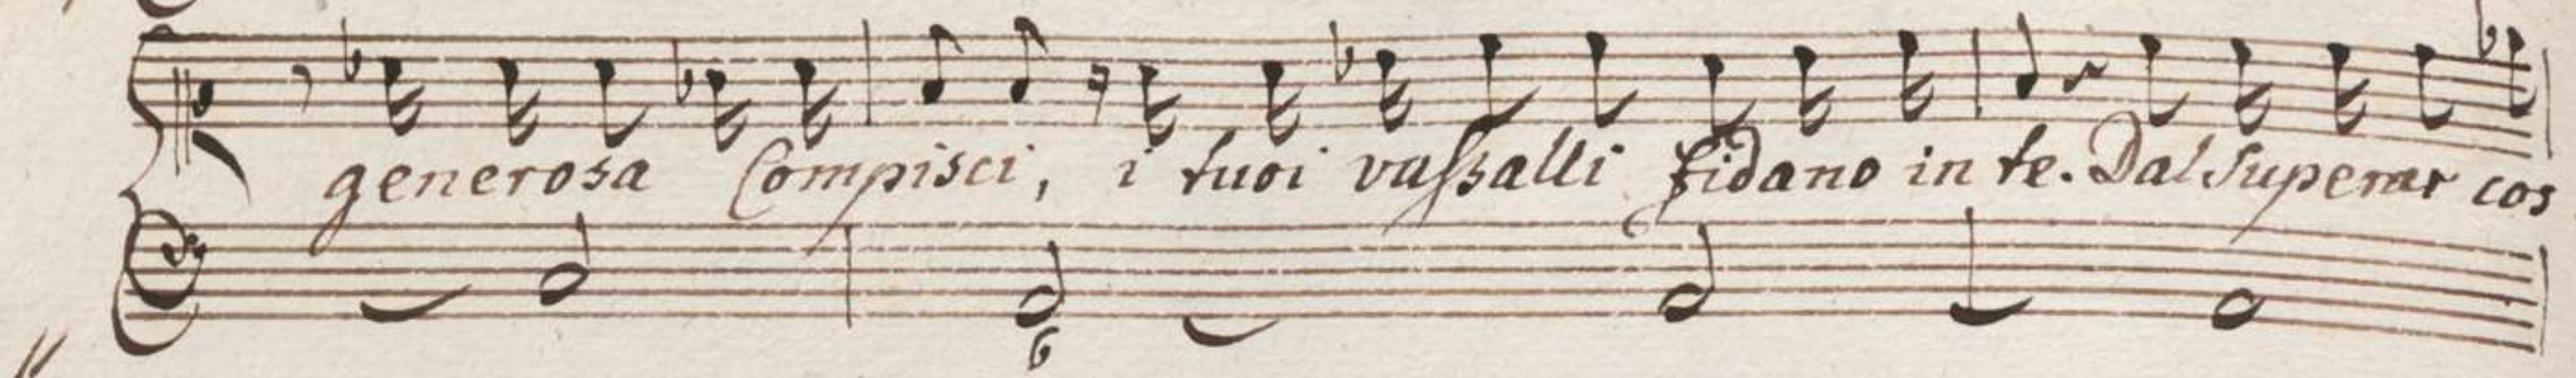 generosa Compisci, i tuoi vaſsalli fidano in te. Dal superar cos
6